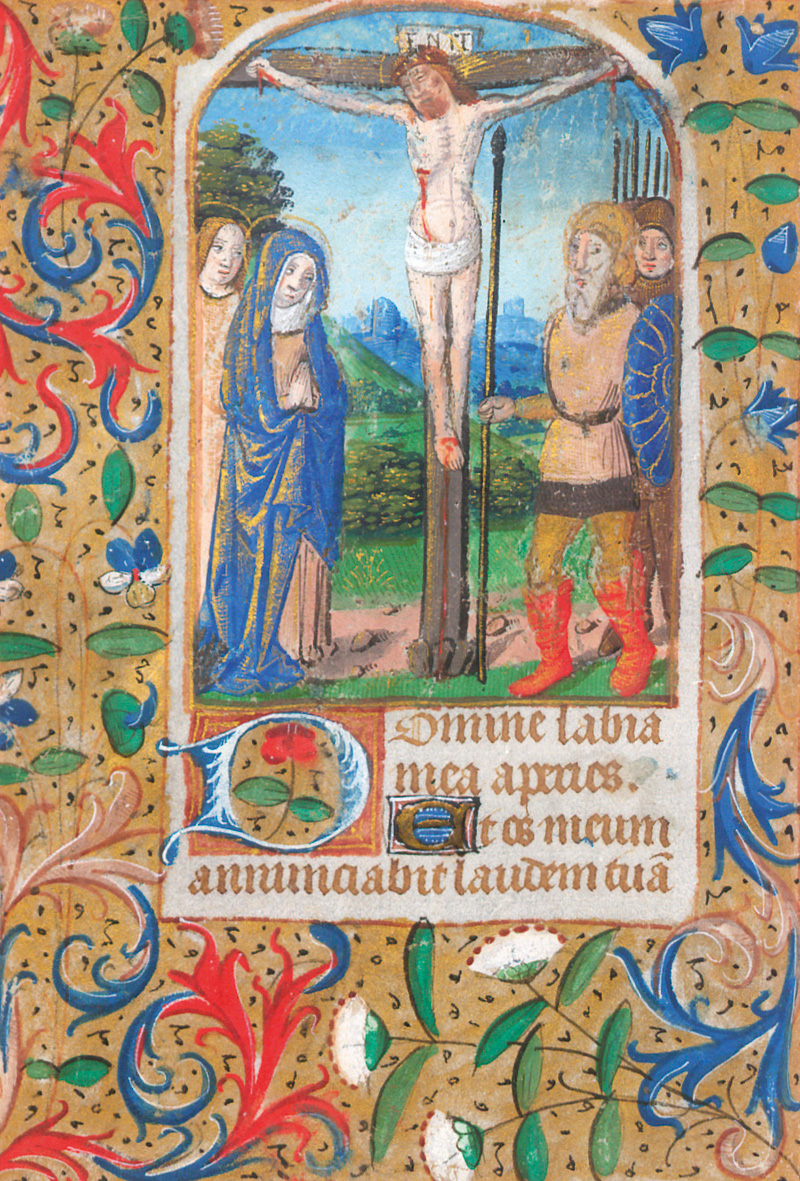 INRI
Domine labia
mea aperies.
Et os meum
annunciabit laudem tuã